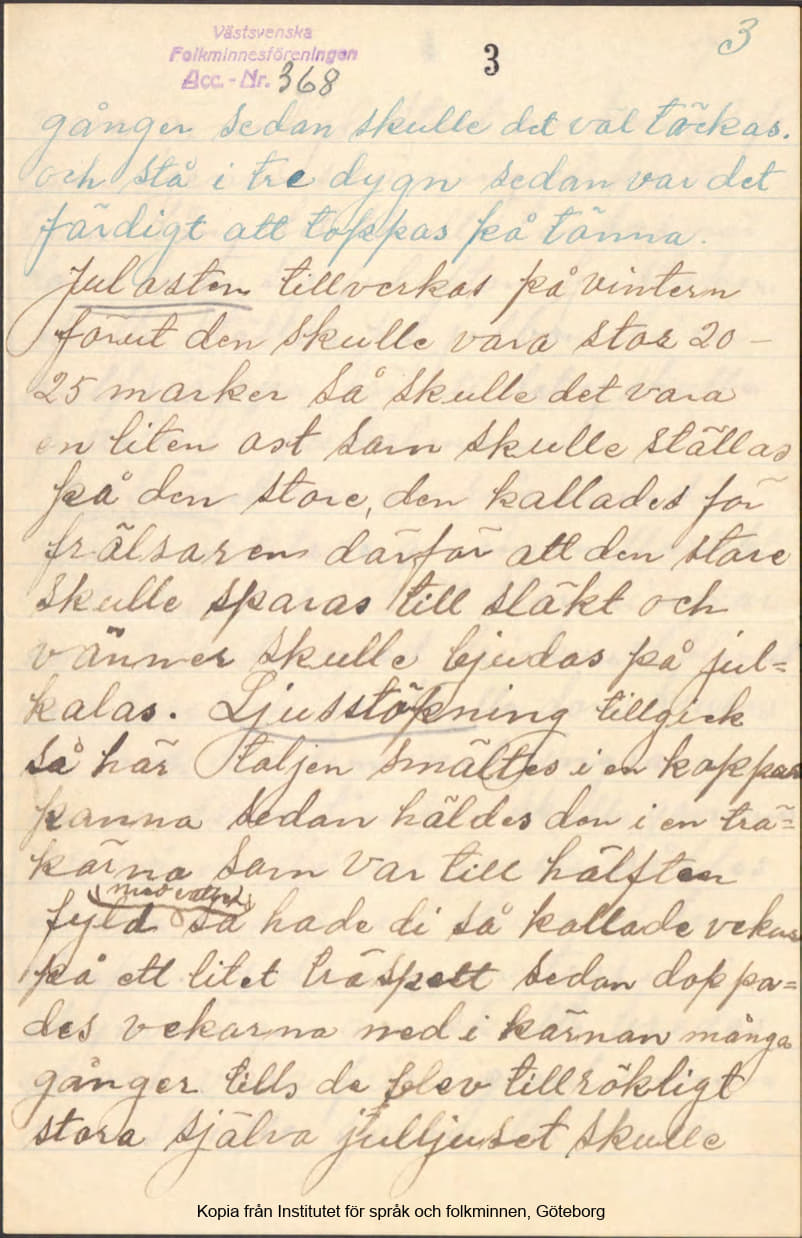 Västsvenska
Folkminnesföreningen
Acc. - Nr. 368
3
3
gånger sedan skulle det väl täckas.
och stå i tre dygn sedan var det
färdigt att toppas på tänna.
Julosten tillverkas på vintern
förut den skulle vara stor 20-
25 marker så skulle det vara
en liten ost som skulle ställas
på den store, den kallades för
frälsaren därför att den store
skulle sparas till släkt och
vänner skulle bjudas på jul=
kalas. Ljusstöpning tillgick
så här Taljen smältes i en koppar
kanna sedan häldes den i en trä=
kärna som var till hälften
(med vatten)
fyld så hade di så kallade vekar
på ett litet träspett sedan doppa=
des vekarna ned i kärnan många
gånger tills de blev tillräkligt
stora själva julljuset skulle
Kopia från Institutet för språk och folkminnen, Göteborg